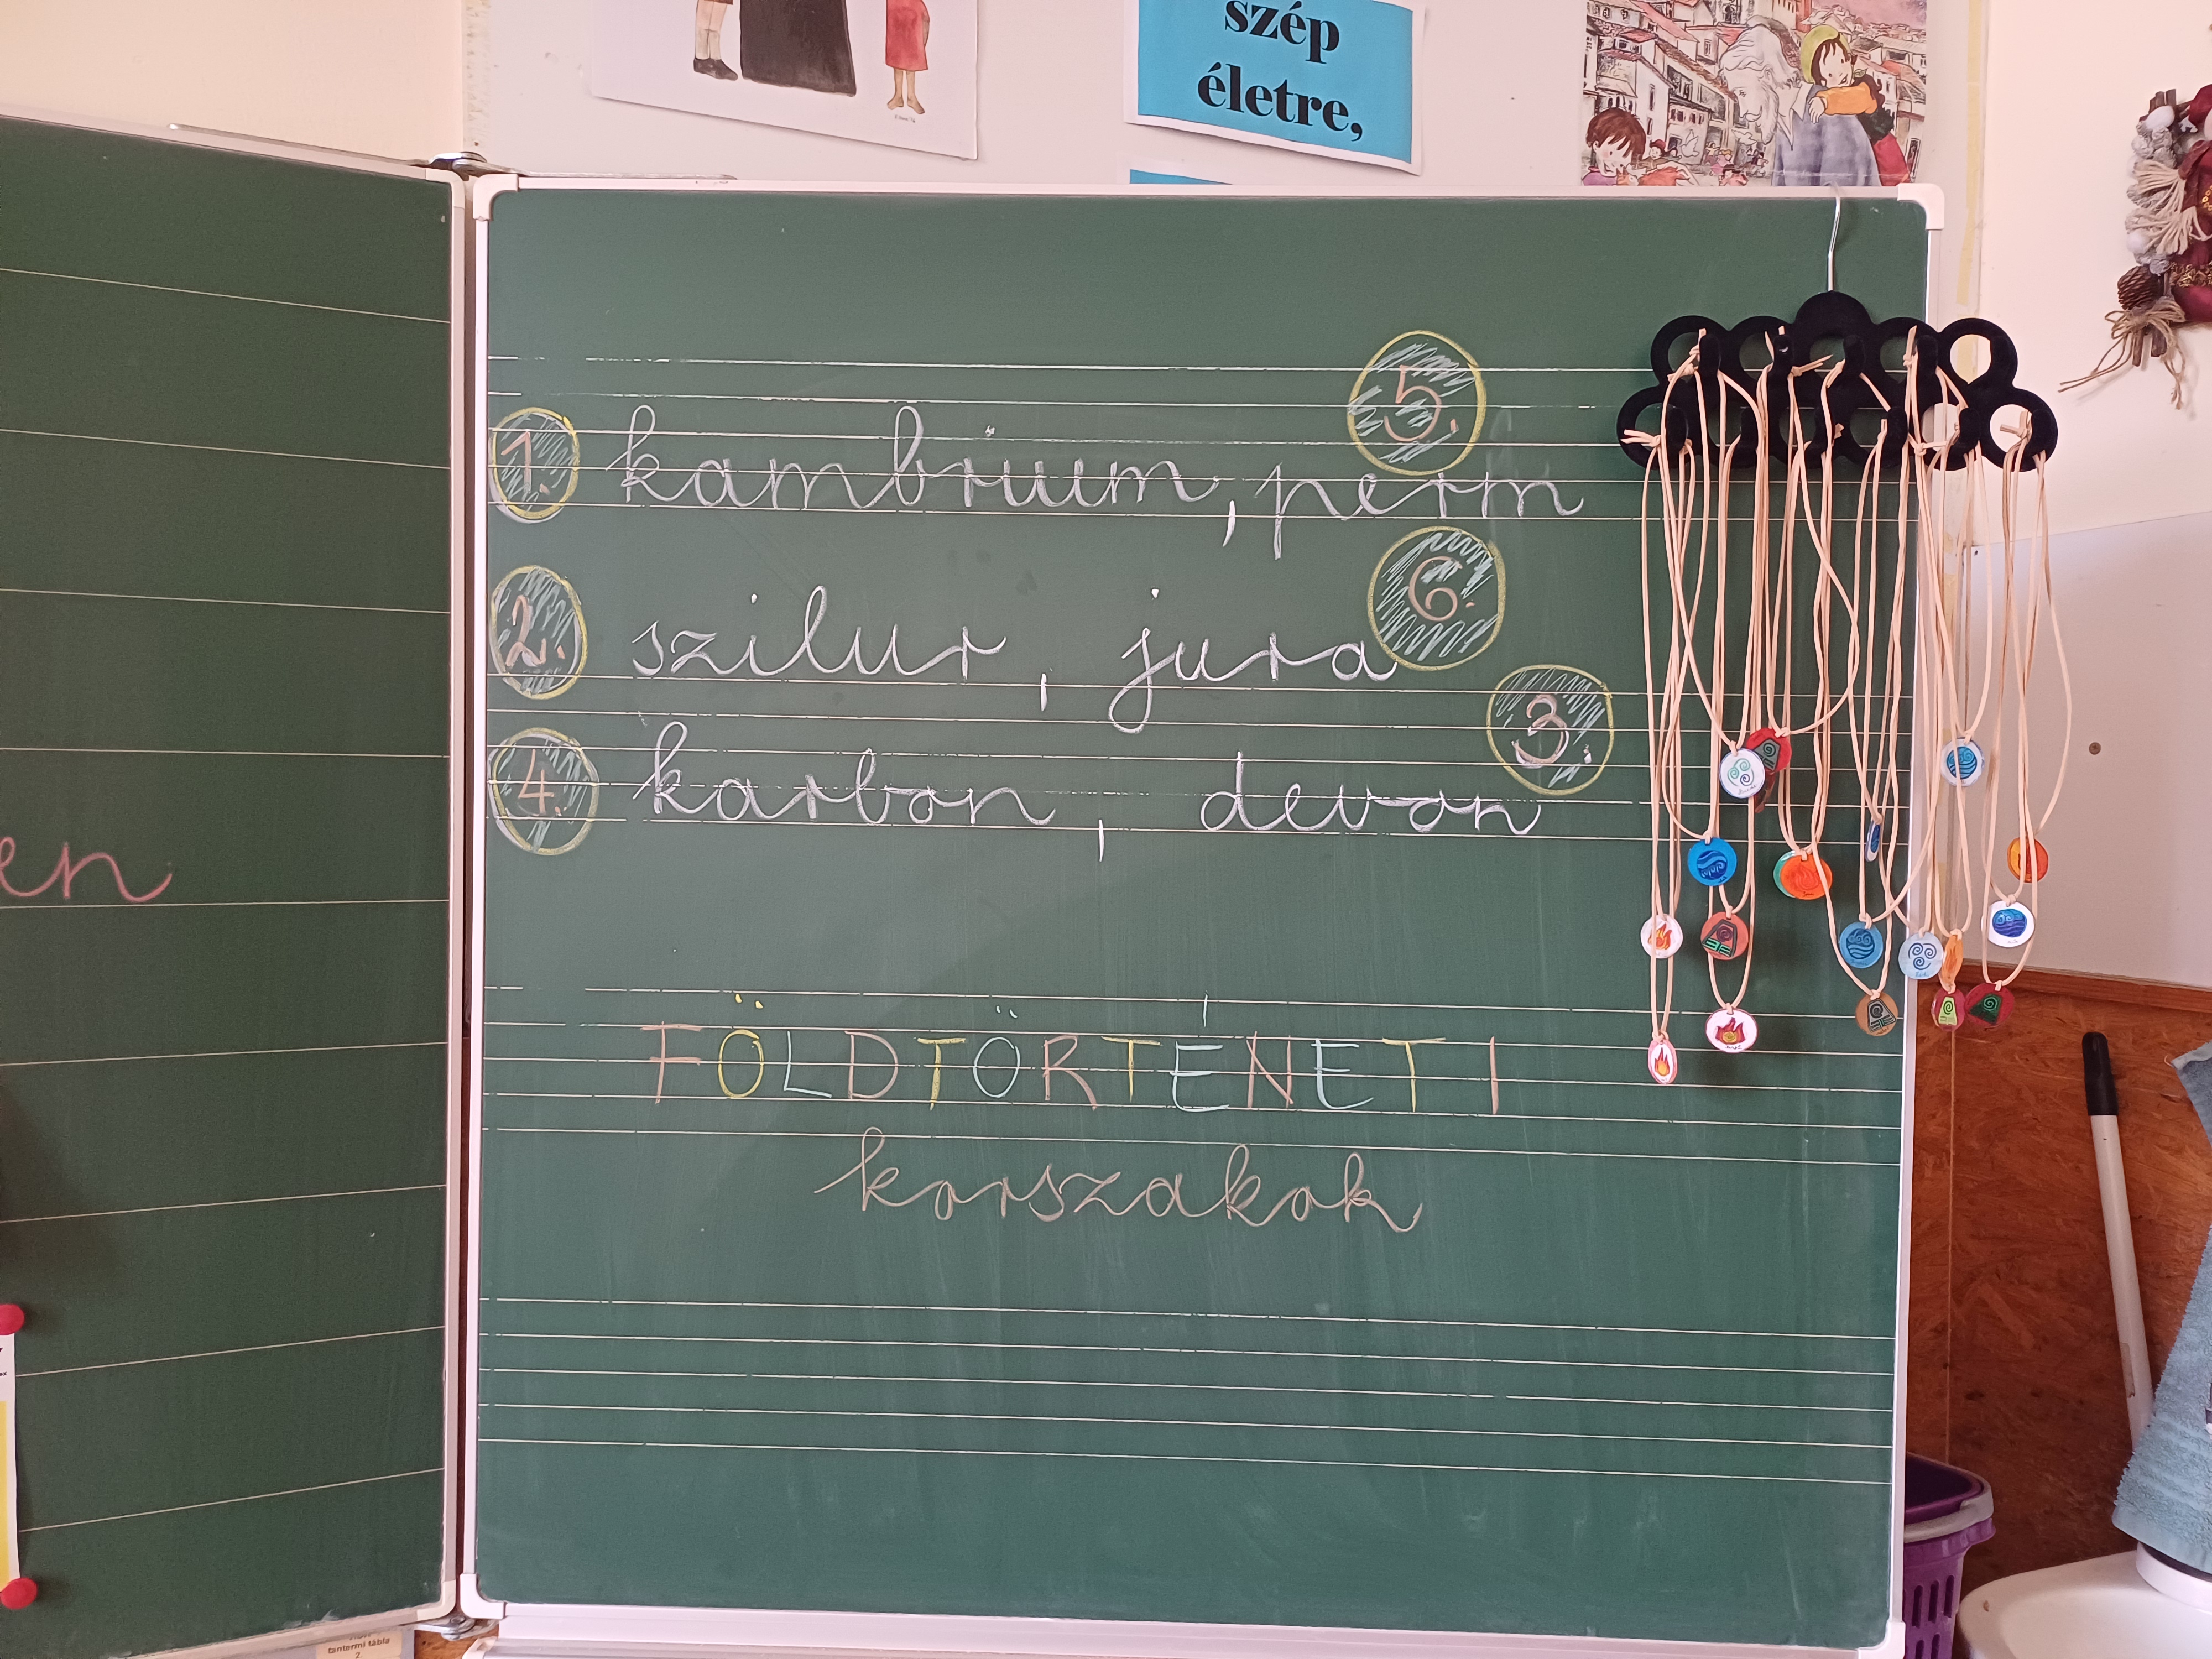 szép
életre,
5.
1. kambrium, perm
6.
2. szilur, jura
3.
4. karbon, devon
en
FÖLDTÖRTÉNETI
korszakok
tantermi tábla
2